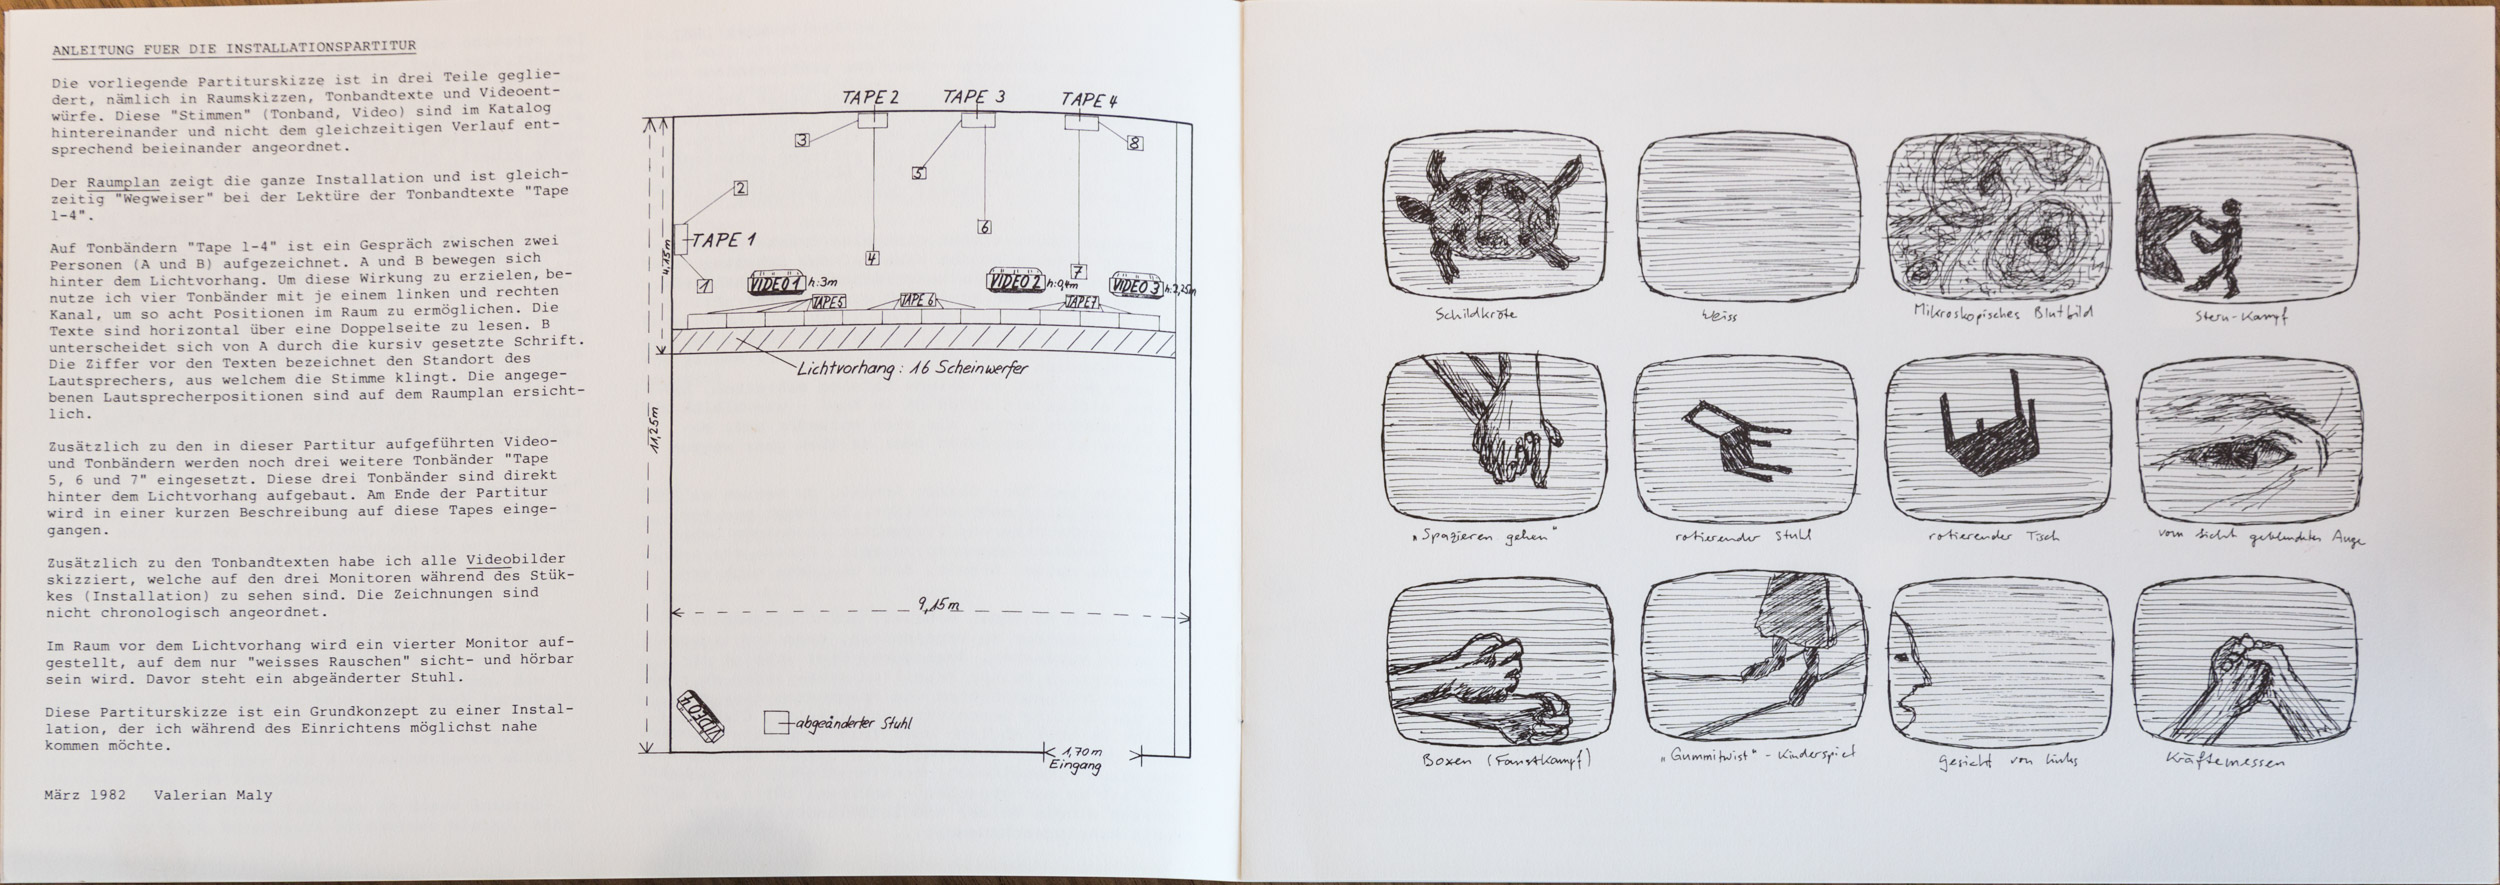 ANLEITUNG FUER DIE INSTALLATIONSPARTITUR
Die vorliegende Partiturskizze ist in drei Teile geglie-
dert, nämlich in Raumskizzen, Tonbandtexte und Videoent-
würfe. Diese "Stimmen" (Tonband, Video) sind im Katalog
hintereinander und nicht dem gleichzeitigen Verlauf ent-
sprechend beieinander angeordnet.
Der Raumplan zeigt die ganze Installation und ist gleich-
zeitig "Wegweiser" bei der Lektüre der Tonbandtexte "Tape
1-4".
Auf Tonbändern "Tape 1-4" ist ein Gespräch zwischen zwei
Personen (A und B) aufgezeichnet. A und B bewegen sich
hinter dem Lichtvorhang. Um diese Wirkung zu erzielen, be-
nutze ich vier Tonbänder mit je einem linken und rechten
Kanal, um so acht Positionen im Raum zu ermöglichen. Die
Texte sind horizontal über eine Doppelseite zu lesen. B
unterscheidet sich von A durch die kursiv gesetzte Schrift.
Die Ziffer vor den Texten bezeichnet den Standort des
Lautsprechers, aus welchem die Stimme klingt. Die angege-
benen Lautsprecherpositionen sind auf dem Raumplan ersicht-
lich.
Zusätzlich zu den in dieser Partitur aufgeführten Video-
und Tonbändern werden noch drei weitere Tonbänder "Tape
5, 6 und 7" eingesetzt. Diese drei Tonbänder sind direkt
hinter dem Lichtvorhang aufgebaut. Am Ende der Partitur
wird in einer kurzen Beschreibung auf diese Tapes einge-
gangen.
Zusätzlich zu den Tonbandtexten habe ich alle Videobilder
skizziert, welche auf den drei Monitoren während des Stük-
kes (Installation) zu sehen sind. Die Zeichnungen sind
nicht chronologisch angeordnet.
Im Raum vor dem Lichtvorhang wird ein vierter Monitor auf-
gestellt, auf dem nur "weisses Rauschen" sicht- und hörbar
sein wird. Davor steht ein abgeänderter Stuhl.
Diese Partiturskizze ist ein Grundkonzept zu einer Instal-
lation, der ich während des Einrichtens möglichst nahe
kommen möchte.
März 1982 Valerian Maly
TAPE 2 TAPE 3 TAPE 4
3 8
5
2
6
TAPE 1
4,15m
4
7
1
VIDEO 1 h:3m
VIDEO 2 h:0,4m
VIDEO 3 h:2,25m
TAPE 5 TAPE 6 TAPE 7
Lichtvorhang: 16 Scheinwerfer
11,25m
9,15m
VIDEO 4
abgeänderter Stuhl
1,70m
Eingang
Schildkröte
Weiss
Mikroskopisches Blutbild
Stern-Kampf
„Spazieren gehen"
rotierender Stuhl
rotierender Tisch
vom Licht geblendetes Auge
Boxen (Faustkampf)
„Gummitwist" - Kinderspiel
Gesicht von links
Kräftemessen